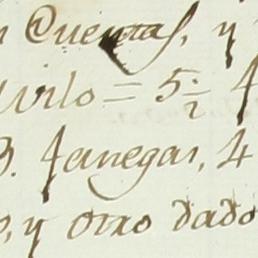 n Cuentas, y
uirlo = 5 1/2 f
3. fanegas, 4
o, y otro dado